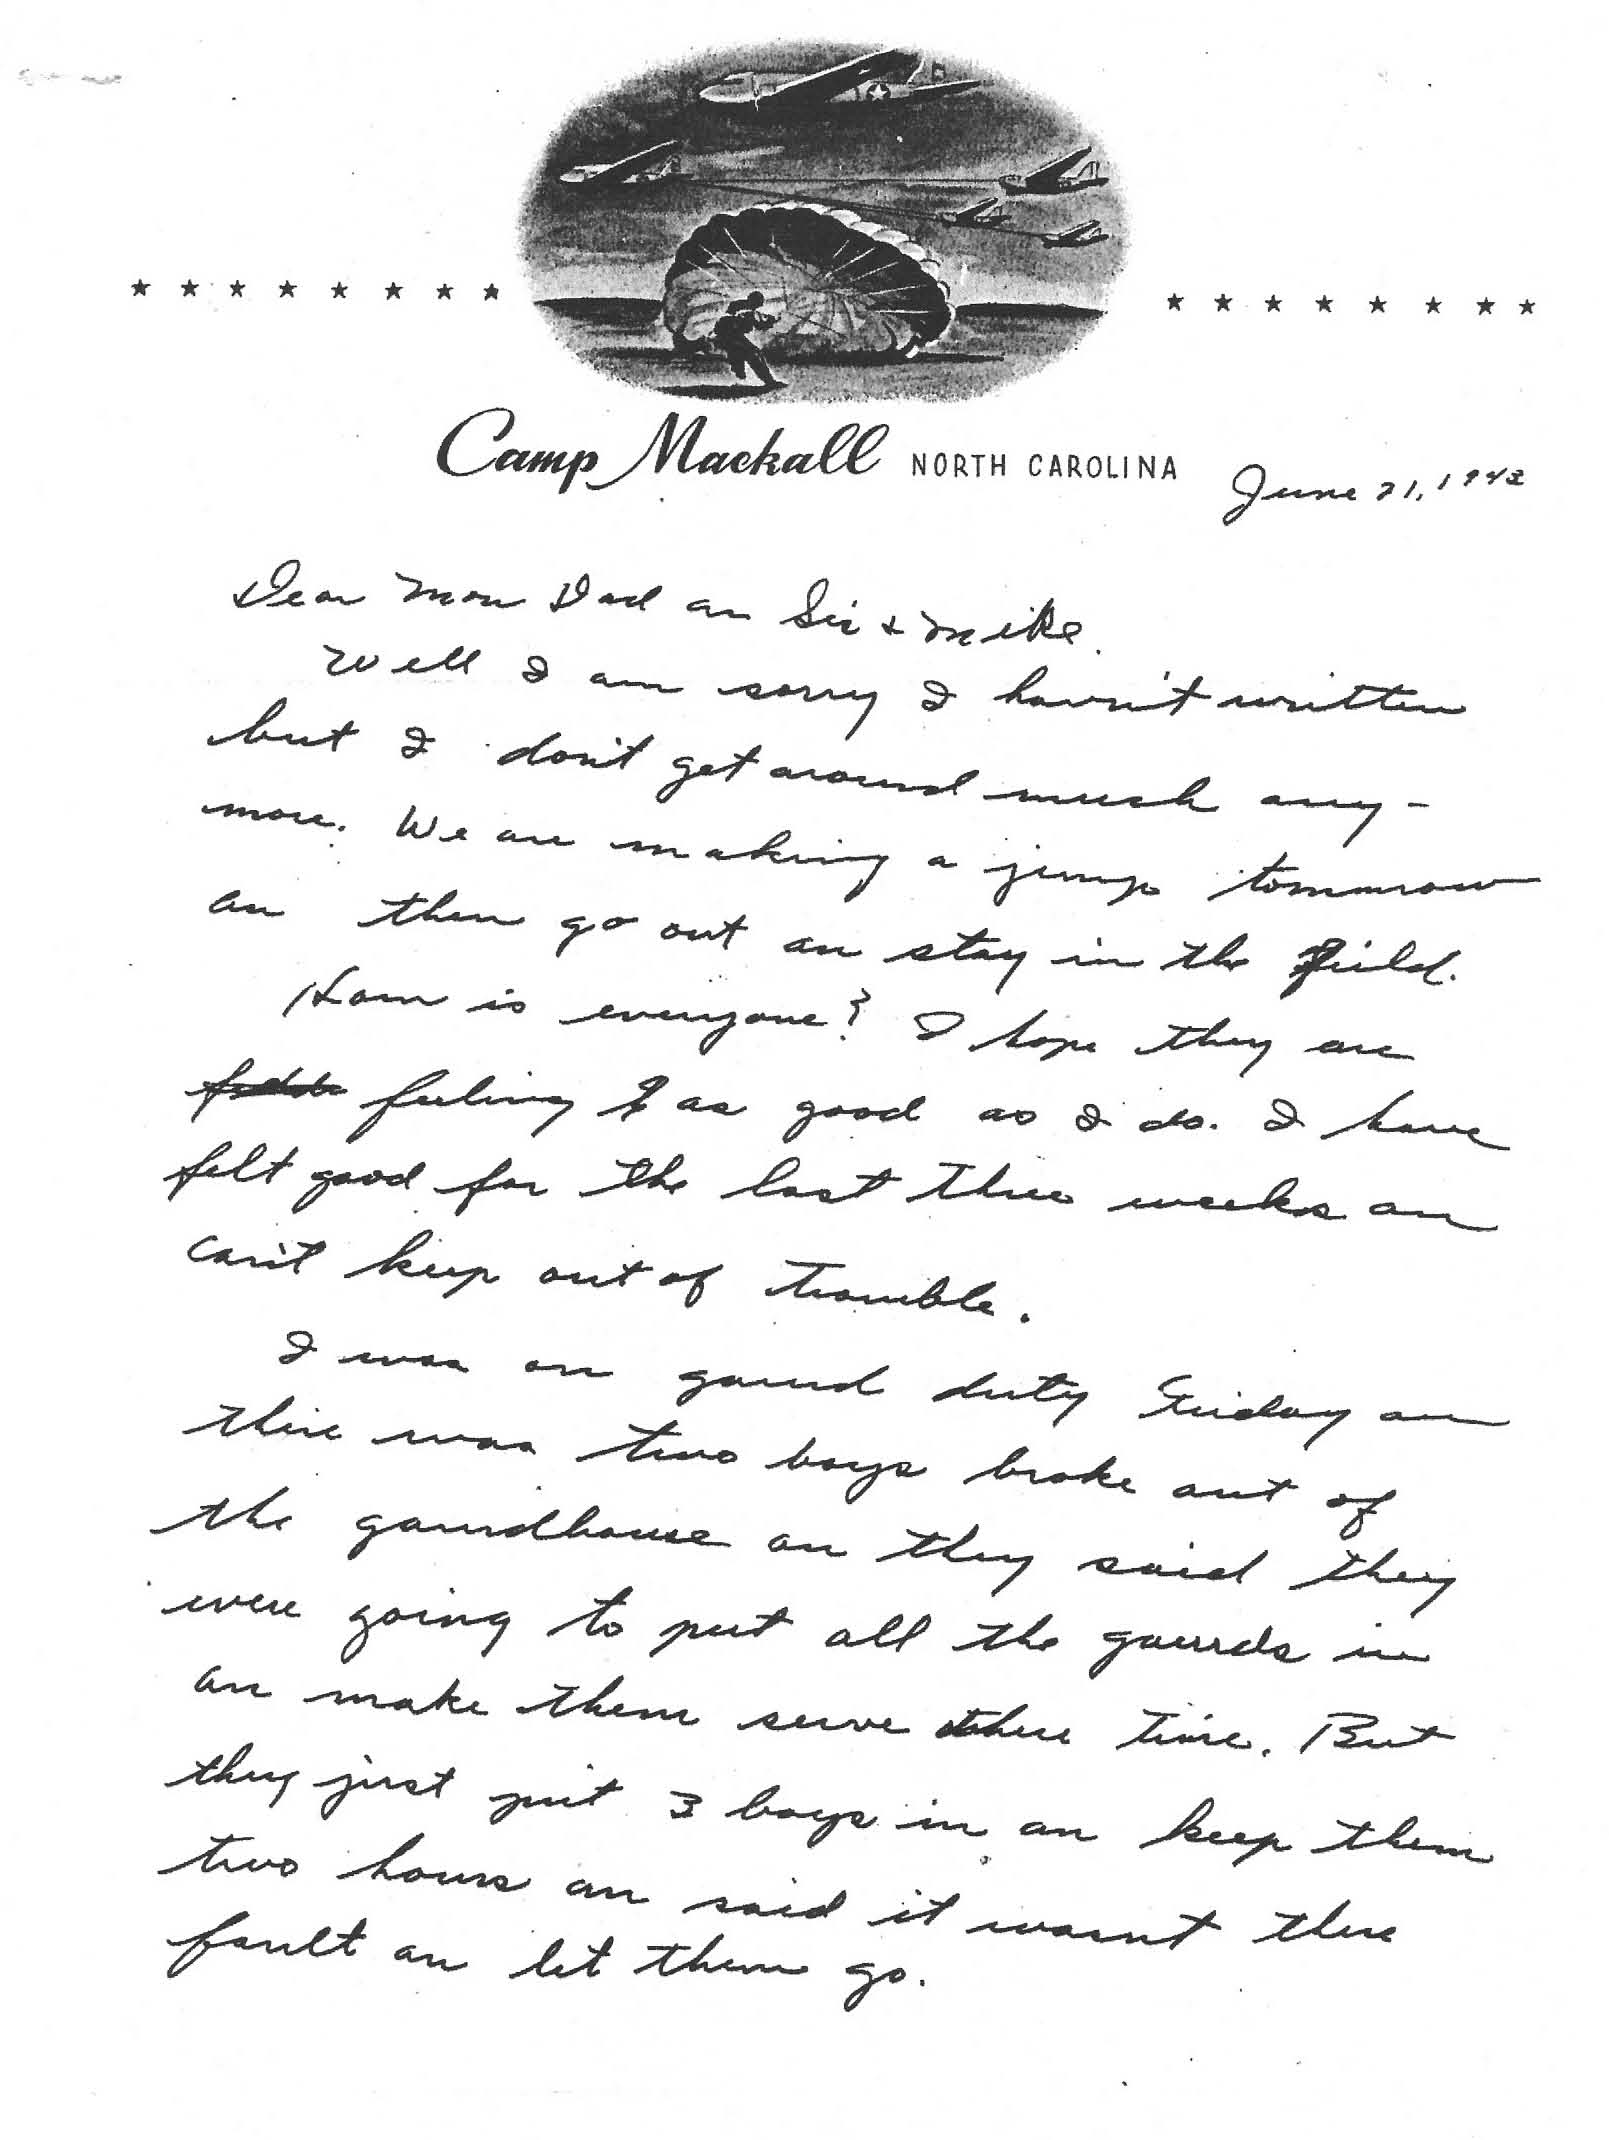 Camp Mackall NORTH CAROLINA
June 21, 1943
Dear Mom Dad an Sis & Mike.
Well I am sorry I havn't written
but I don't get around much any-
more. We are making a jump tommorow
an then go out an stay in the field.
How is everyone? I hope they are
feeling as good as I do. I have
felt good for the last three weeks an
can't keep out of trouble.
I was on gaurd duty Friday an
there was two boys broke out of
the gaurdhouse an they said they
were going to put all the gaurds in
an make them serve there time. But
they just put 3 boys in an keep them
two hours an said it wasn't there
fault an let them go.